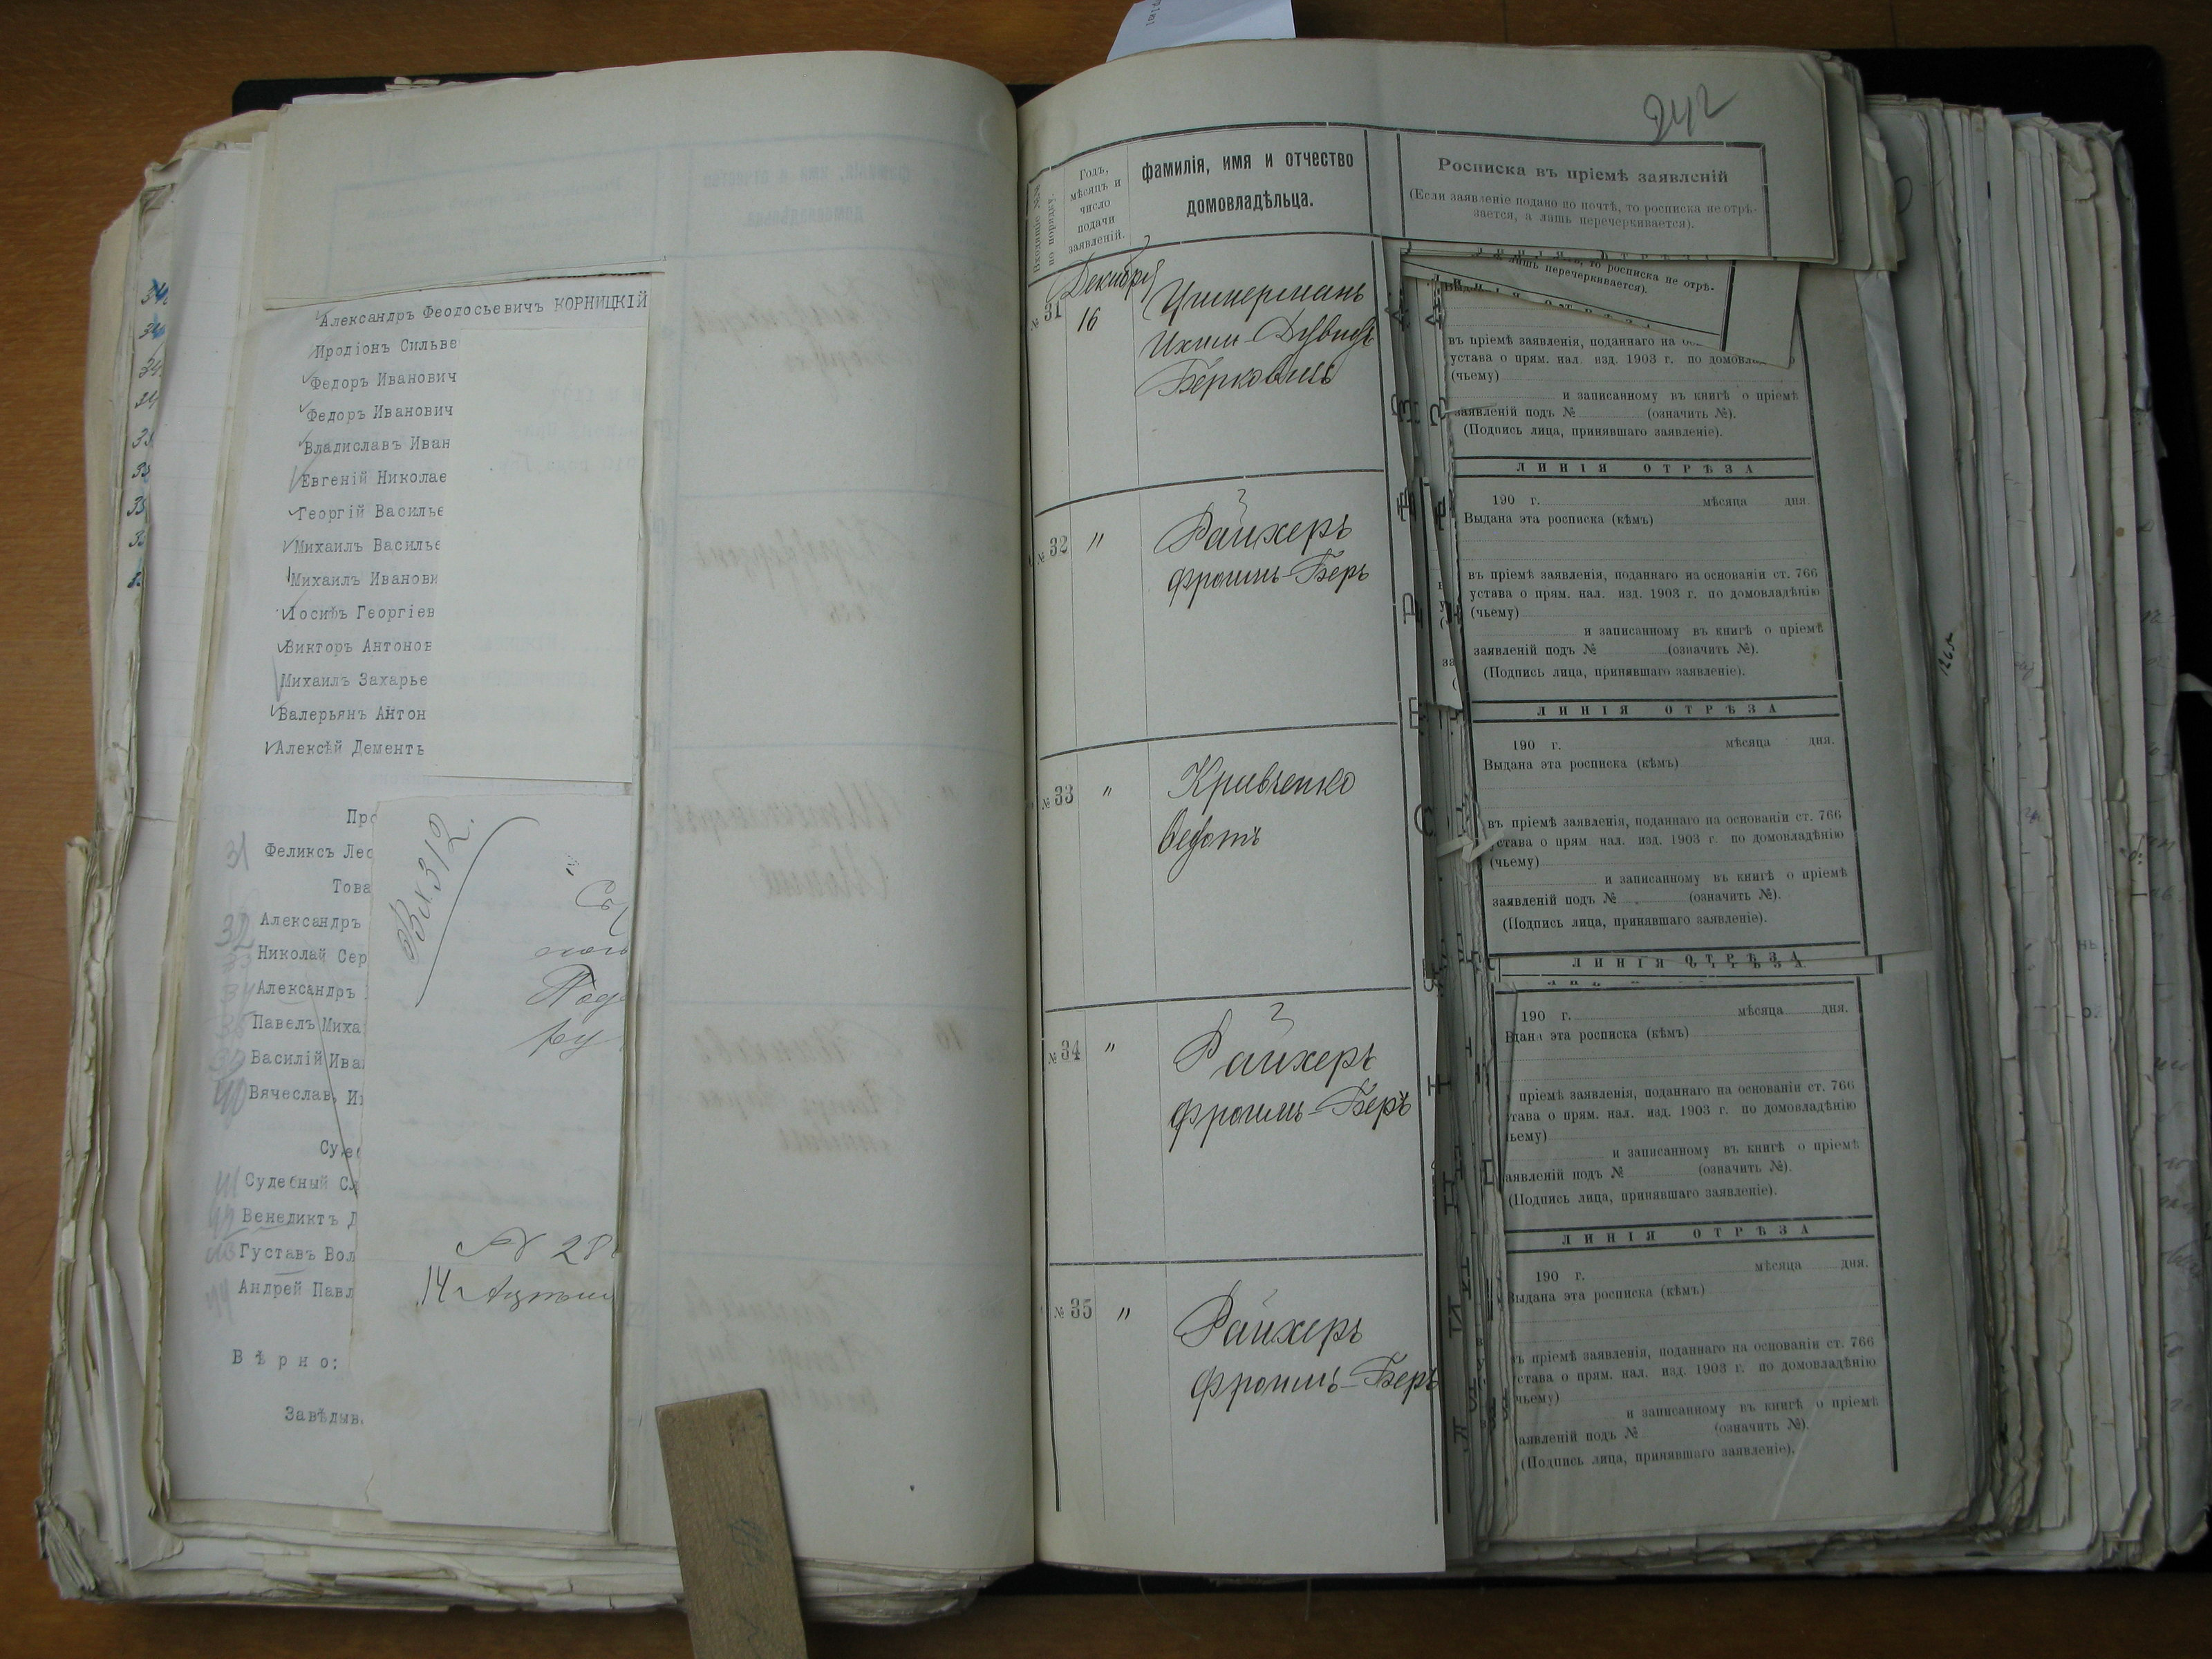 Александръ Феодосьевичъ КОРНИЦКІЙ
Иродіонъ Сильве
Федоръ Иванович
Федоръ Иванович
Владиславъ Иван
Евгеній Николае
Георгій Василье
Михаилъ Василье
Михаилъ Иванови
Іосифъ Георгіев
Викторъ Антонов
Михаилъ Захарье
Валерьянъ Антон
Алексѣй Дементь
Вх. 312.
Про
31 Феликсъ Лео
Това
32 Александръ
33 Николай Сер
34 Александръ
Павелъ Миха
Василій Ива
40 Вячеслав, Ив
Суде
41 Судебный Сл
42 Венедиктъ Д
43 Густавъ Вол
44 Андрей Павл
Вѣрно:
Завѣдыв
№ 28
242
Входящіе №№ по порядку.
Годъ, мѣсяцъ и число подачи заявленій.
фамилія, имя и отчество
домовладѣльца.
Росписка въ пріемѣ заявленій
(Если заявленіе подано по почтѣ, то росписка не отрѣ-
зается, а лишь перечеркивается).
Декабря
№ 31 16 Цимерманъ
Ихил-Дувидъ
Берковичъ
№ 32 " Райхеръ
Фроимъ-Беръ
№ 33 " Кривченко
Ѳедотъ
№ 34 " Райхеръ
Фроимъ-Беръ
№ 35 " Райхеръ
Фроимъ-Беръ
то росписка не отрѣ-
лишь перечеркивается).
въ пріемѣ заявленія, поданнаго на
устава о прям. нал. изд. 1903 г. по домовл
(чьему)
и записанному въ книгѣ о пріемѣ
заявленій подъ № (означить №).
(Подпись лица, принявшаго заявленіе).
ЛИНІЯ ОТРѢЗА
190 г. мѣсяца дня.
Выдана эта росписка (кѣмъ)
въ пріемѣ заявленія, поданнаго на основаніи ст. 766
устава о прям. нал. изд. 1903 г. по домовладѣнію
(чьему)
и записанному въ книгѣ о пріемѣ
заявленій подъ № (означить №).
(Подпись лица, принявшаго заявленіе).
ЛИНІЯ ОТРѢЗА
190 г. мѣсяца дня.
Выдана эта росписка (кѣмъ)
въ пріемѣ заявленія, поданнаго на основаніи ст. 766
устава о прям. нал. изд. 1903 г. по домовладѣнію
(чьему)
и записанному въ книгѣ о пріемѣ
заявленій подъ № (означить №).
(Подпись лица, принявшаго заявленіе).
ЛИНІЯ ОТРѢЗА
190 г. мѣсяца дня.
ыдана эта росписка (кѣмъ)
пріемѣ заявленія, поданнаго на основаніи ст. 766
тава о прям. нал. изд. 1903 г. по домовладѣнію
ьему)
и записанному въ книгѣ о пріемѣ
аявленій подъ № (означить №).
(Подпись лица, принявшаго заявленіе).
ЛИНІЯ ОТРѢЗА
190 г. мѣсяца дня.
Выдана эта росписка (кѣмъ)
въ пріемѣ заявленія, поданнаго на основаніи ст. 766
става о прям. нал. изд. 1903 г. по домовладѣнію
чьему)
и записанному въ книгѣ о пріемѣ
аявленій подъ № (означить №).
(Подпись лица, принявшаго заявленіе).